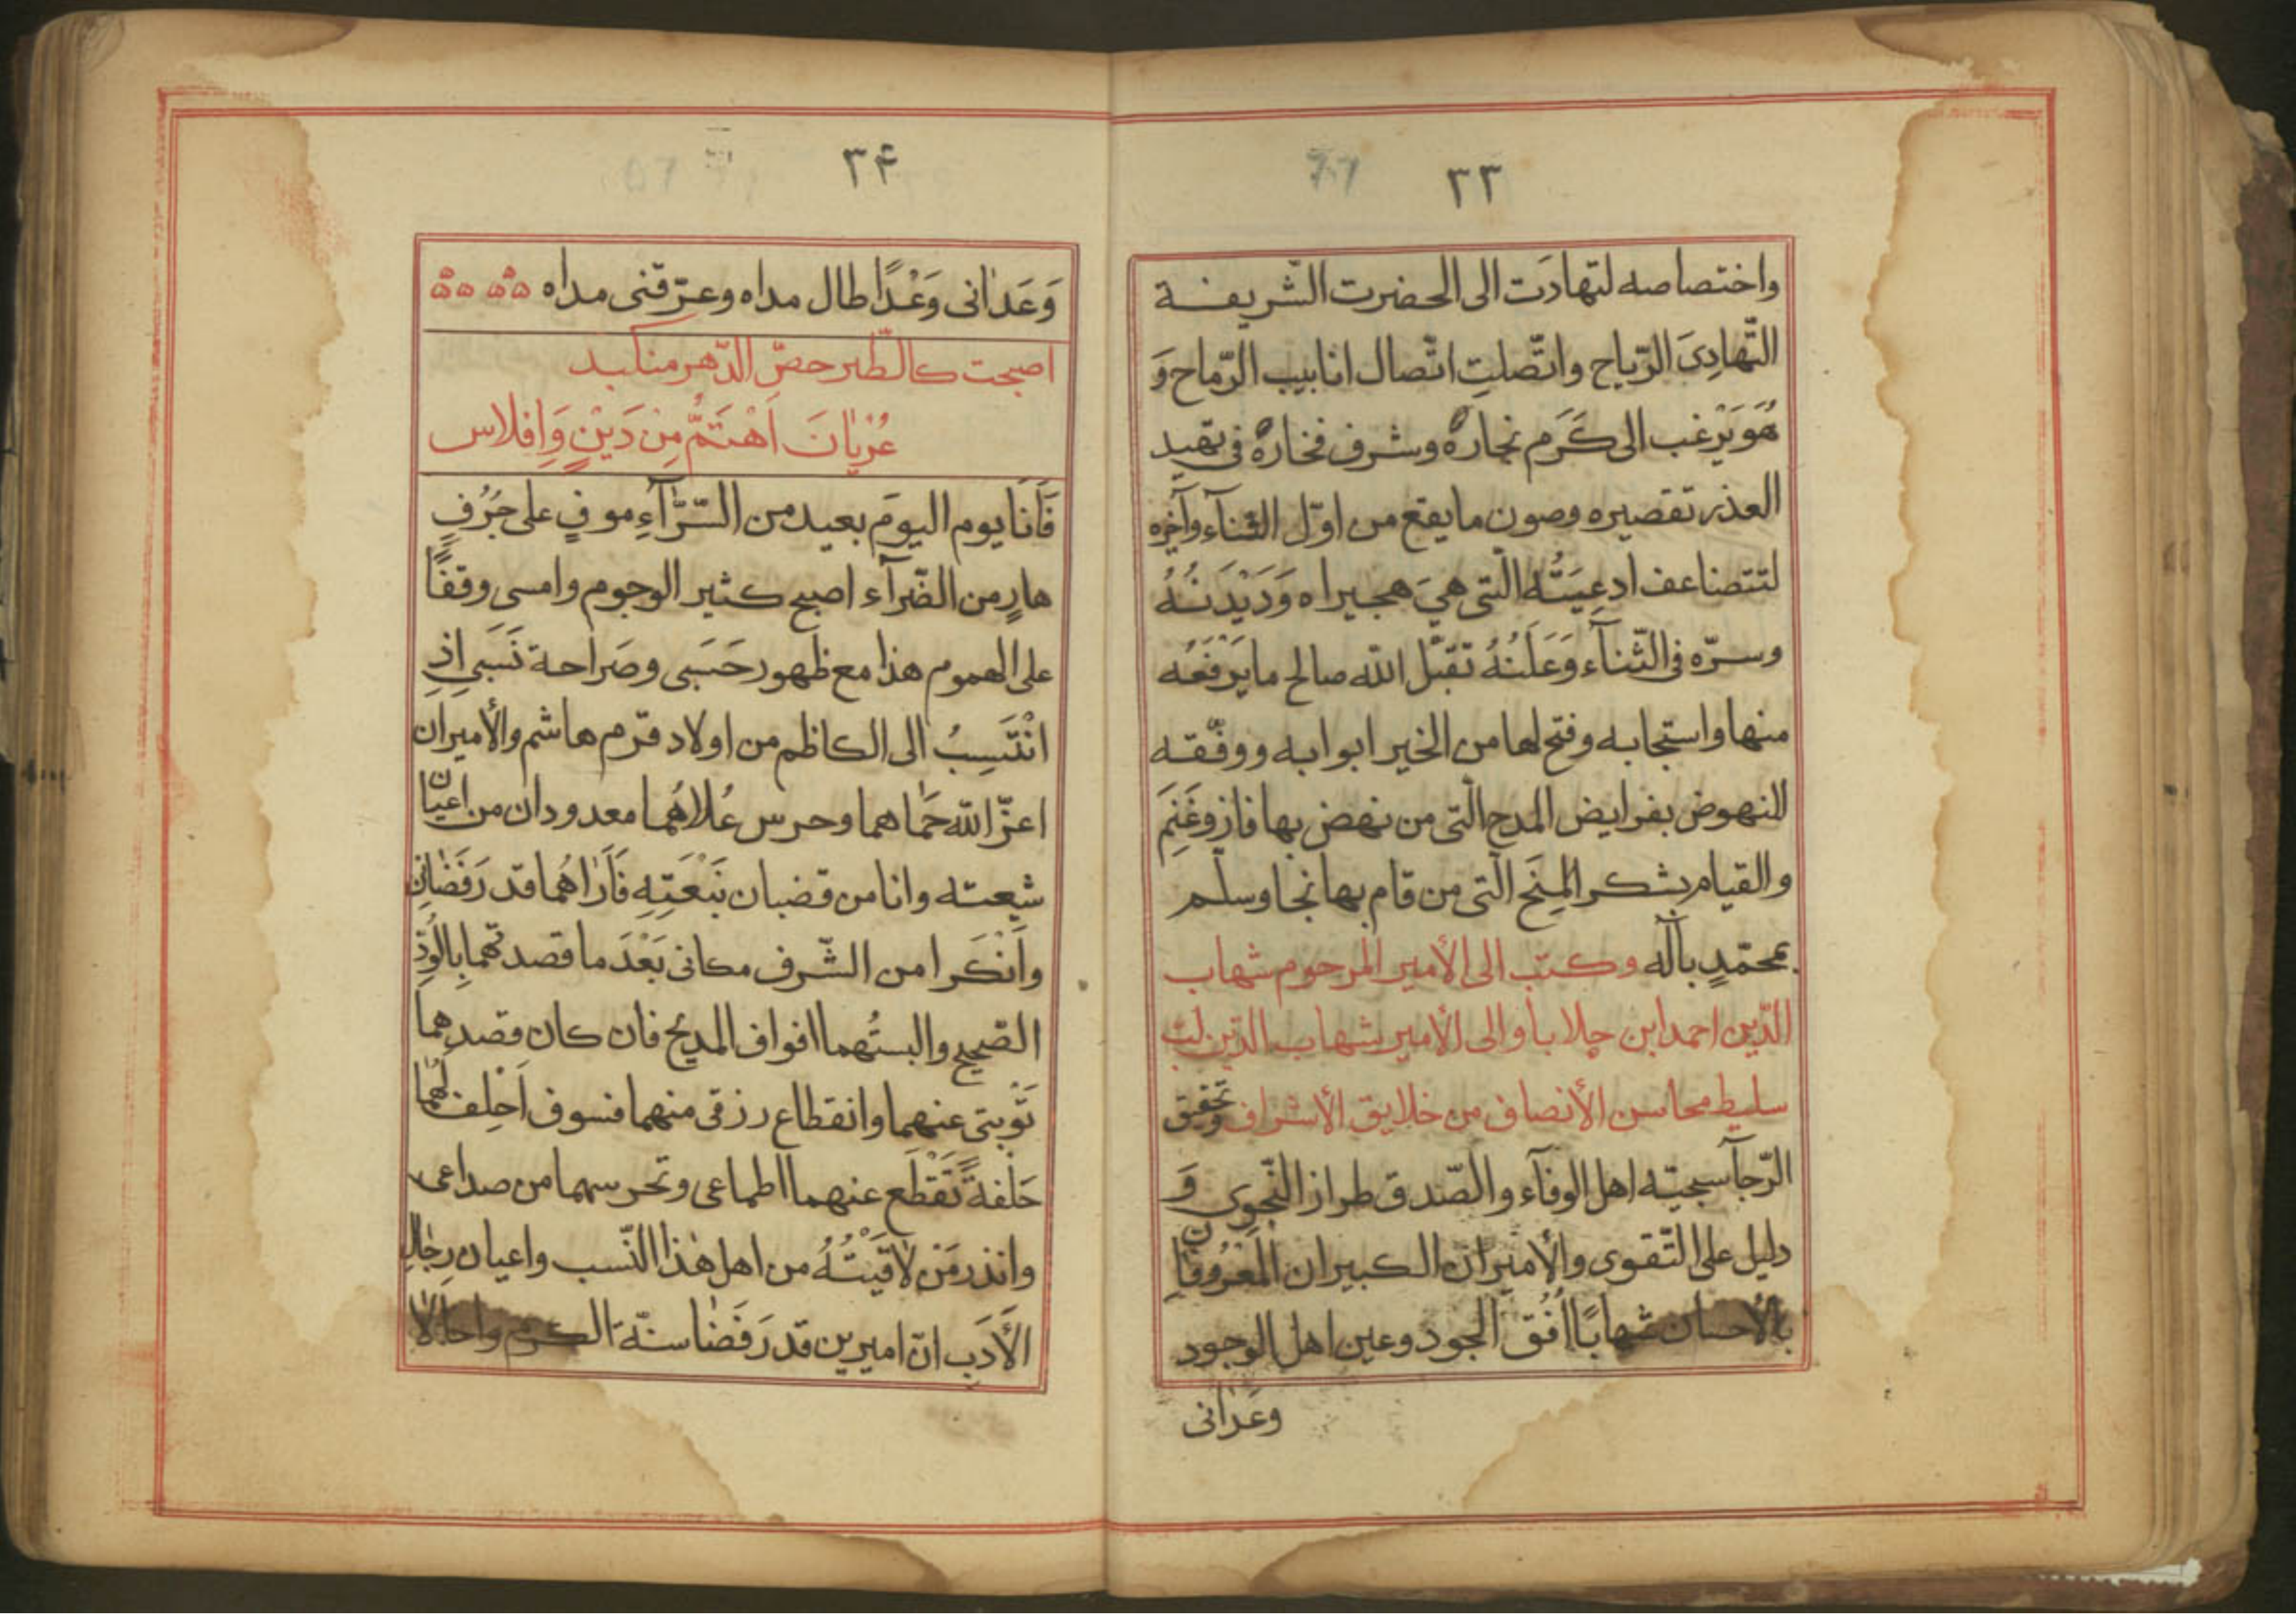 ٣٣
واختصاصه لتهادَت الى الحضرت الشّريفة
التّهادِىَ الرّياح واتّصلتِ اتّصال انابيب الرّماح وَ
هُوَ يَرْغب الى كَرَم نجاره وشرف فخاره فى تمهيد
العذر تقصيره وصون ما يقع من اوّل الثّنآء وآخره
لتتضاعف ادعِيَتُه الّتى هىَ هجيراه وَدَيْدَنُهُ
وسرّه فى الثّنآء وَعَلَنُهُ تقبّل الله صالح ما يَرْفَعُه
منها واستجابه وفتح لها من الخير ابوابه ووفّقه
للنهوض بفرايض المدح الّتى من نهض بها فاز وغَنِمَ
والقيام بشكر المِنَح الّتى من قام بها نجا وسلّم
بمحمّدٍ بآله وكتب الى الأمير المرحوم شهاب
الدّين احمد ابن جلابا والى الأمير شهاب الدّين
سليط محاسن الأنصاف من خلايق الأشراف وتحقيق
الرّجآ سجيّه اهل الوفآء والصّدق طراز النّجوى وَ
دليل على التّقوى والأميران الكبيران المعْرُوفان
بالأحسان شهابًا اُفُق الجود وعين اهل الوجود
وعدانى
٣۴
وَعَدانى وَعْدًا طال مداه وعرّفنى مداه
اصبحت كالطّير حصّ الدّهر منكبه
عُرْيانَ اَهْتَمُّ مِنْ دَيْنٍ وَاِفلاس
فَاَنَا يوم اليومَ بعيد من السّرّآءِ موفٍ على جَرُفٍ
هارٍ من الضّرآء اصبح كثير الوجوم وامسى وقفًا
على الهموم هذا مع ظهور حَسَبى وصَراحة نَسَبى اِذ
انْتَسِبُ الى الكاظم من اولاد قرْم هاشم والأميران
اعزّ الله حَماهما وحرس عُلاهُما معدودان من اعيان
شيعته وانا من قضبان نَبْعَتِهِ فَاَراهُما قد رَفَضانى
واَنْكَرا من الشّرف مكانى بَعْدَ ما قصدتهما بِالوُدّ
الصّحيح والبستُهما افواف المديح فان كان قصدهما
تَوْبتى عنهما وانقطاع رزقى منهما فسوف اَحْلِف لَهُما
حَلْفةً تَقْطَع عنهما اطماعى وتحرسهما من صداعى
وانذر مَن لاقَيْتُهُ من اهل هٰذا النّسب واعيان رِجال
الأدَب انّ اميرين قد رَفَضا سنّة الكرم واحالا